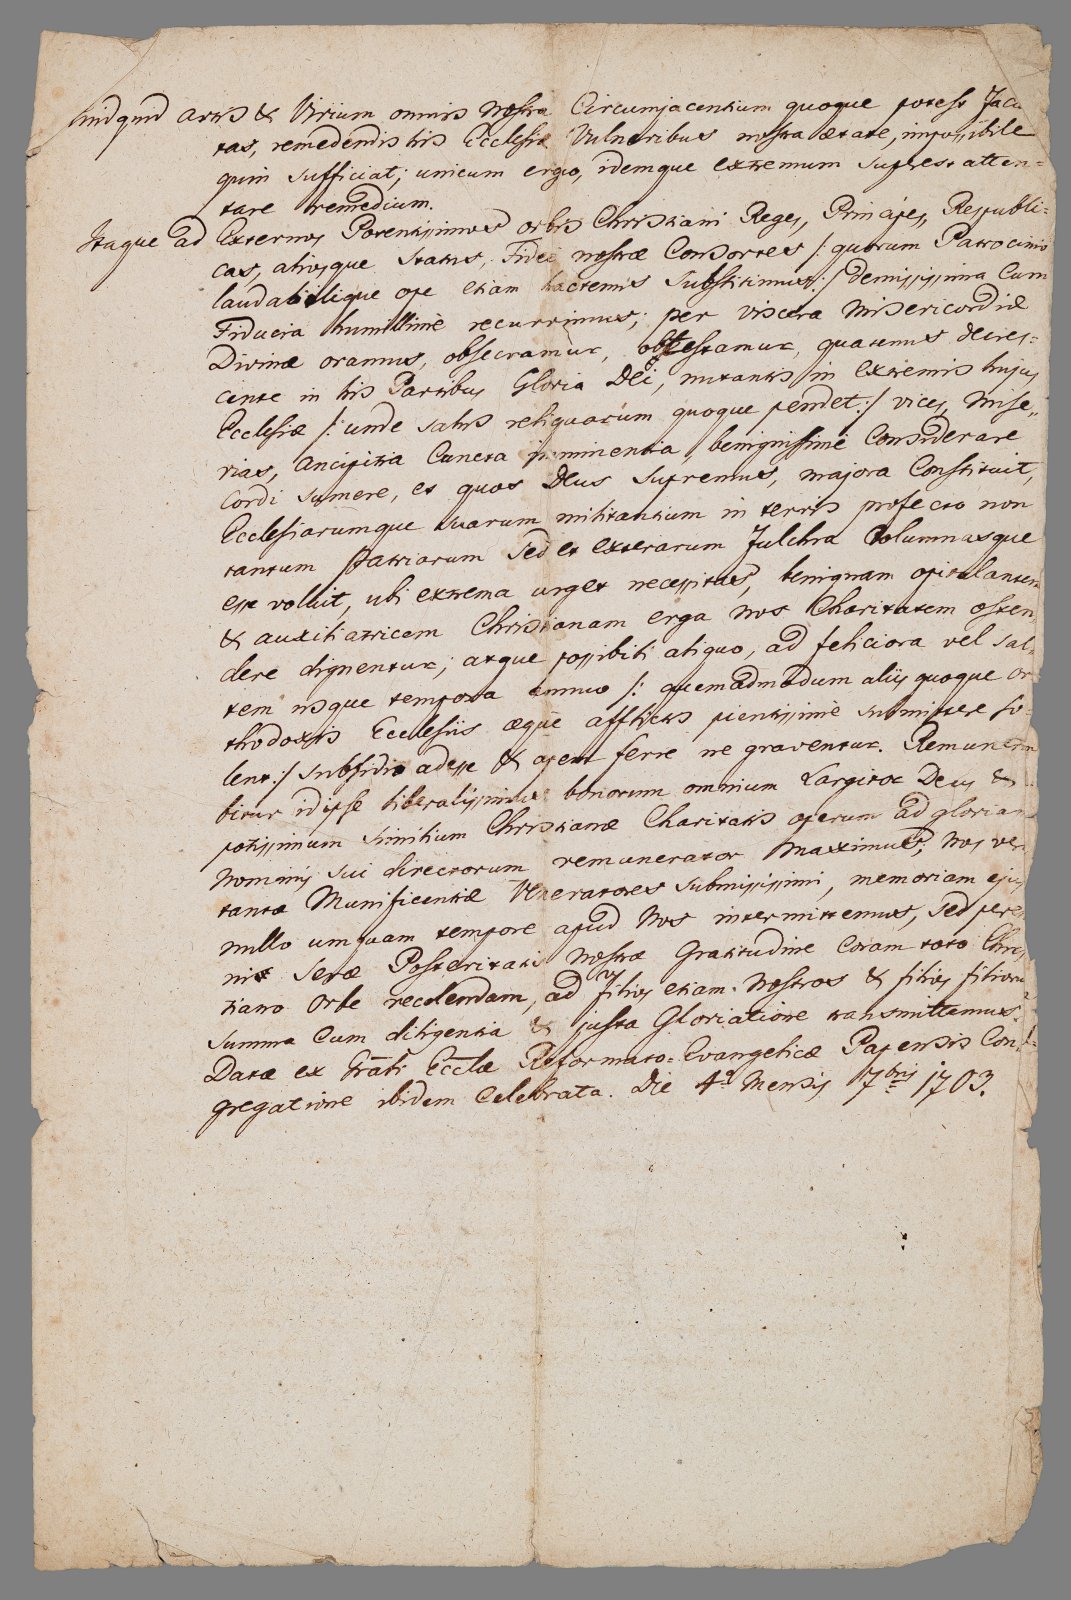 quidquid artis & Virium omnis nostra Circumjacentium quoque potest Facul
tas, remedendis his Ecclesiæ Vulneribus nostra ætate, impossibile
quin sufficiat; unicum ergo, idemque extremum superest atten=
tare remedium.
Itaque ad Externos Potentissimos orbis Christiani Reges, Principes, Respubli=
cas, aliosque status, Fidei nostræ Consortes /: quorum Patrocinio
laudabilique ope etiam hactenus substitimus :/ demississima Cum
Fiducia humillime recurrimus; per viscera Misericordiæ
Divinæ oramus, obsecramur, obtestamur, quatenus decres=
cente in his Partibus Gloria Dei, nutantis in extremis hujus
Ecclesiæ /: unde salus reliquarum quoque pendet :/ vices, Mise„
rias, ancipitia Cuncta imminentia, benignissime Considerare
Cordi sumere, et quos Deus supremus, majora Constituit,
Ecclesiarumque suarum militantium in terris profecto non
tantum patriarum sed et exterarum Fulchra Columnasque
esse voluit, ubi extrema urget necessitas, benignam opitulantem
& auxiliatricem Christianam erga nos Charitatem osten
dere dignentur; atque possibili aliquo, ad feliciora vel sal=
tem usque tempora annuo /: quemadmodum aliis quoque or
thodoxis Ecclesiis æque afflictis pientissime submittere so=
lent :/ subsidio adesse & opem ferre ne graventur. Remunera
bitur id ipse liberalissimus bonorum omnium Largitor Deus &
potissimum similium Christianæ Charitatis operum ad gloriam
Nominis sui directorum remunerator Maximus; Nos vero
tantæ Munificentiæ Veneratores submississimi, memoriam ejus
nullo umquam tempore apud Nos intermittemus, sed peren
nis seræ Posteritatis Nostræ Gratitudine Coram toto Chris
tiano Orbe recolendam, ad filios etiam Nostros & filios filiorum
summa Cum diligentia & justa Gloriatione transmittamus.
Datæ ex Grāli Eccla Reformato=Evangelicæ Papensis Con=
gregatione ibidem Celebrata. Die 4ª Mensis 7bris 1703.